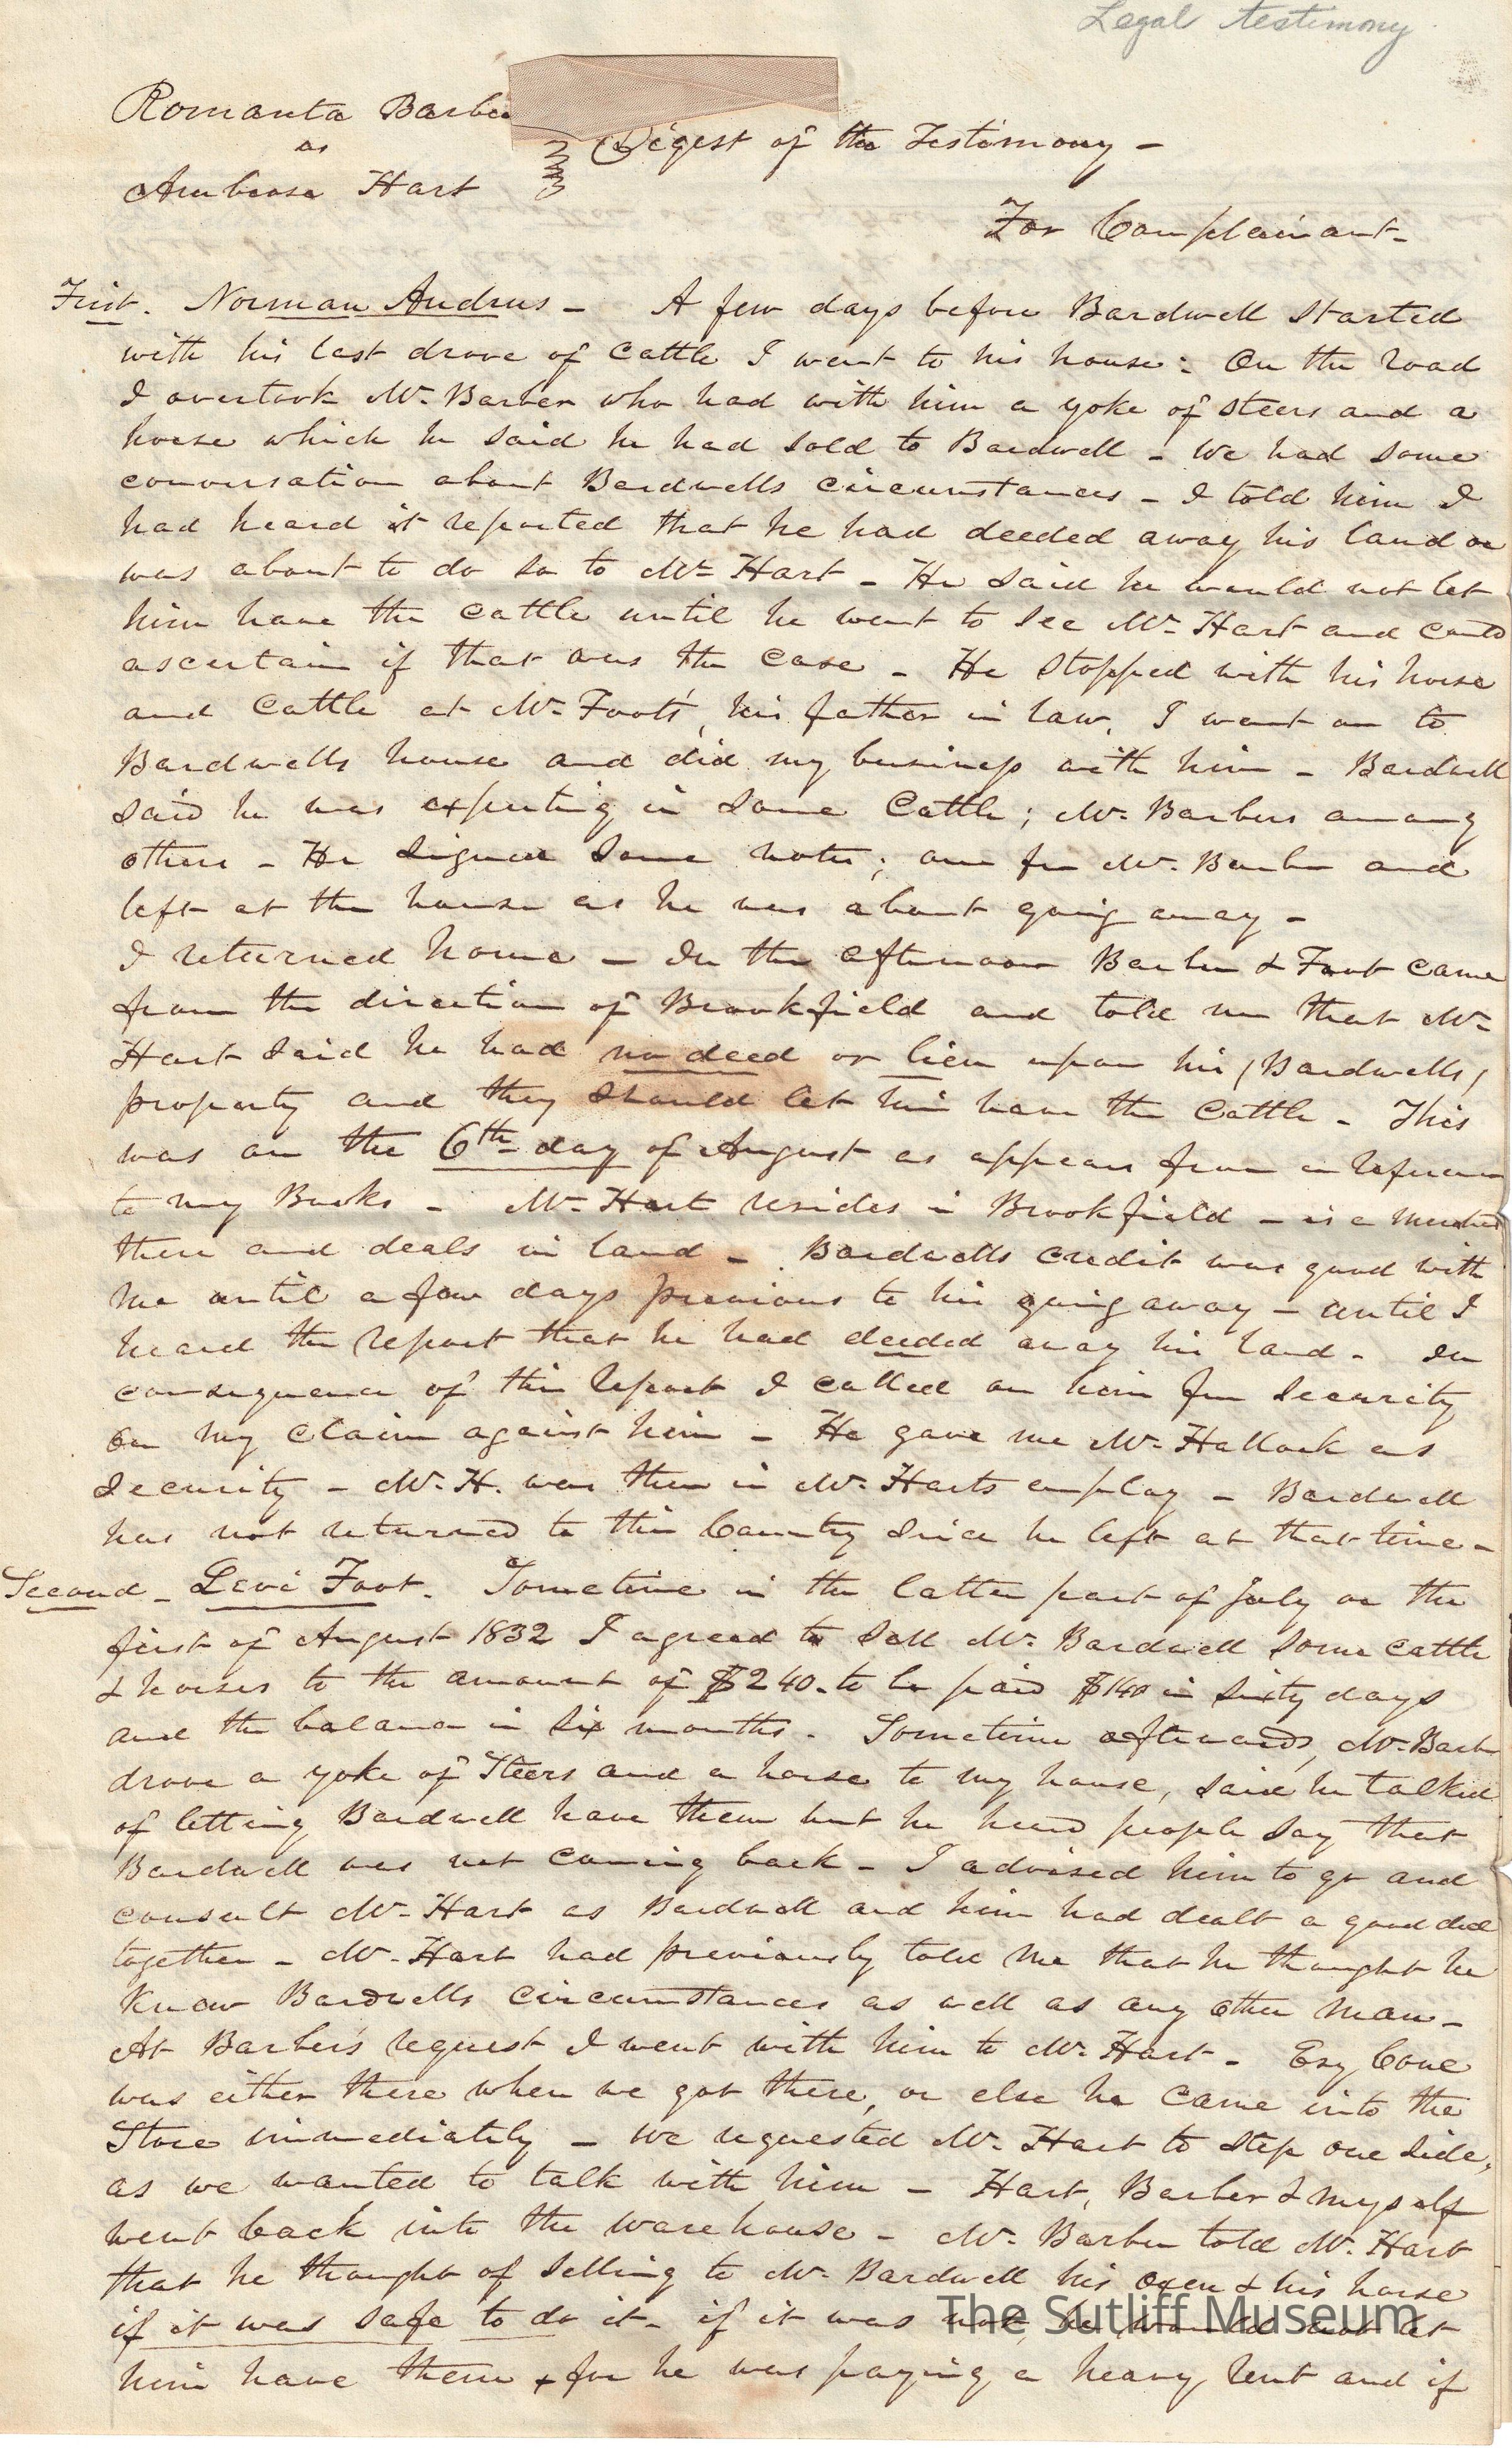 Legal testimony
Romanta Barber
vs
Ambrose Hart
Digest of the Testimony -
For Complainant -
First. Norman Andrus - A few days before Bardwell started
with his last drove of cattle I went to his house: On the road
I overtook Mr. Barber who had with him a yoke of steers and a
horse which he said he had sold to Bardwell - We had some
conversation about Bardwells circumstances - I told him I
had heard it reported that he had deeded away his land or
was about to do so to Mr Hart - He said he would not let
him have the cattle until he went to see Mr Hart and could
ascertain if that was the case - He stopped with his horse
and Cattle at Mr. Foots, his father in law, I went on to
Bardwells house and did my business with him - Bardwell
said he was expecting in some Cattle; Mr. Barbers among
others - He signed some notes; one for Mr. Barber and
left at the house as he was about going away -
I returned home - In the afternoon Barber & Foot came
from the direction of Brookfield and told me that Mr
Hart said he had no deed or lien upon his (Bardwells)
property and they should let him have the Cattle - This
was on the 6th day of August as appears from a reference
to my Books - Mr. Hart resides in Brookfield - is a merchant
there and deals in land - Bardwells credit was good with
me until a few days previous to his going away - until I
heard the report that he had deeded away his land - In
consequence of this report I called on him for security
on my claim against him - He gave me Mr. Hallock as
security - Mr. H. was then in Mr. Harts employ - Bardwell
has not returned to this Country since he left at that time -
Second - Levi Foot. Sometime in the latter part of July or the
first of August 1832 I agreed to sell Mr. Bardwell some cattle
& horses to the amount of $240. to be paid $140 in sixty days
and the balance in six months. Sometime afterwards, Mr. Barber
drove a yoke of Steers and a horse to my house, said he talked
of letting Bardwell have them but he heard people say that
Bardwell was not coming back - I advised him to go and
consult Mr. Hart as Bardwell and him had dealt a good deal
together - Mr. Hart had previously told me that he thought he
knew Bardwells circumstances as well as any other man -
At Barber's request I went with him to Mr. Hart - Esq Cone
was either there when we got there, or else he came into the
Store immediately - We requested Mr. Hart to step one side,
as we wanted to talk with him - Hart, Barber & myself
went back into the warehouse - Mr. Barber told Mr. Hart
that he thought of selling to Mr. Bardwell his oxen & his horse
if it was safe to do it - if it was not, he would not let
him have them + for he was paying a heavy rent and if
The Sutliff Museum